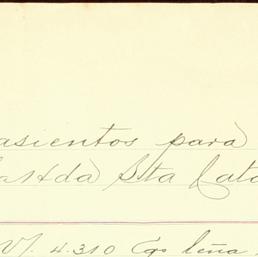 asientos para
Hda Sta Cata
4.310 Cgs leña